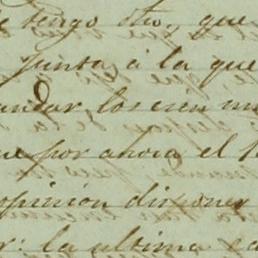 tengo otro, que
junta á la que
mandar los cien mi
que por ahora el
opinion disponer
la ultima ca